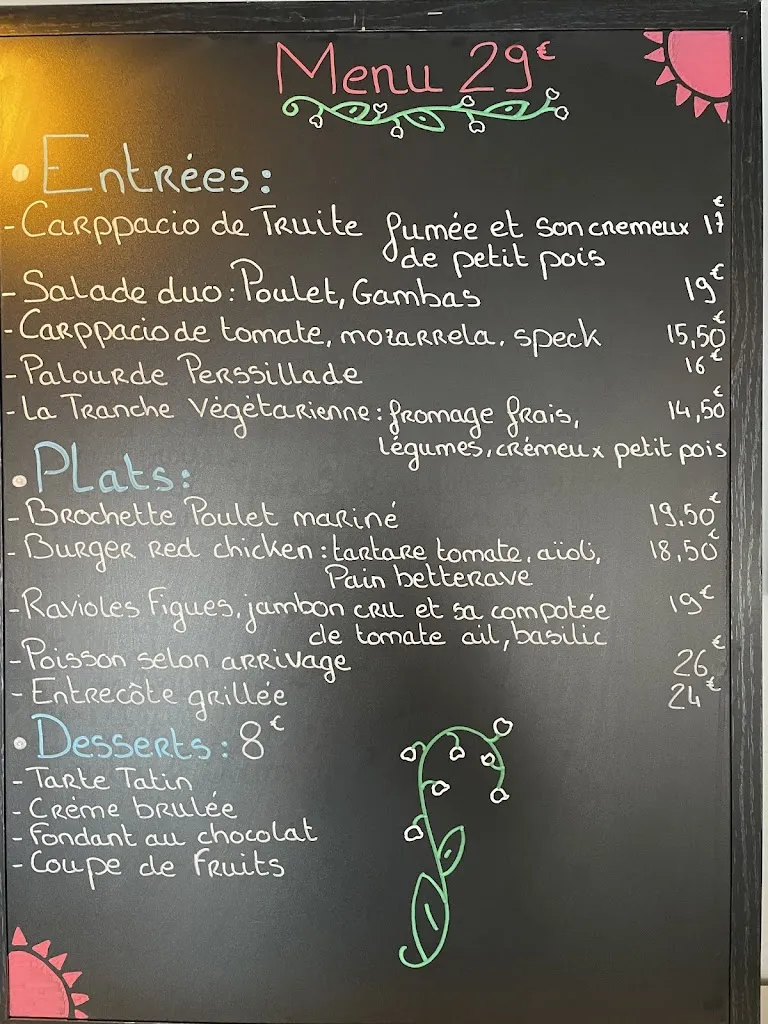 Menu 29€
• Entrées :
- Carppacio de Truite fumée et son cremeux 17€
de petit pois
- Salade duo : Poulet, Gambas 19€
- Carppacio de tomate, mozarrela, speck 15,50€
- Palourde Perssillade 16€
- La Tranche Végétarienne : fromage frais, 14,50€
légumes, crémeux petit pois
• Plats :
- Brochette Poulet mariné 19,50€
- Burger red chicken : tartare tomate, aïoli, 18,50€
Pain betterave
- Ravioles Figues, jambon cru et sa compotée 19€
de tomate ail, basilic
- Poisson selon arrivage 26€
- Entrecôte grillée 24€
• Desserts : 8€
- Tarte Tatin
- Crème brulée
- Fondant au chocolat
- Coupe de Fruits